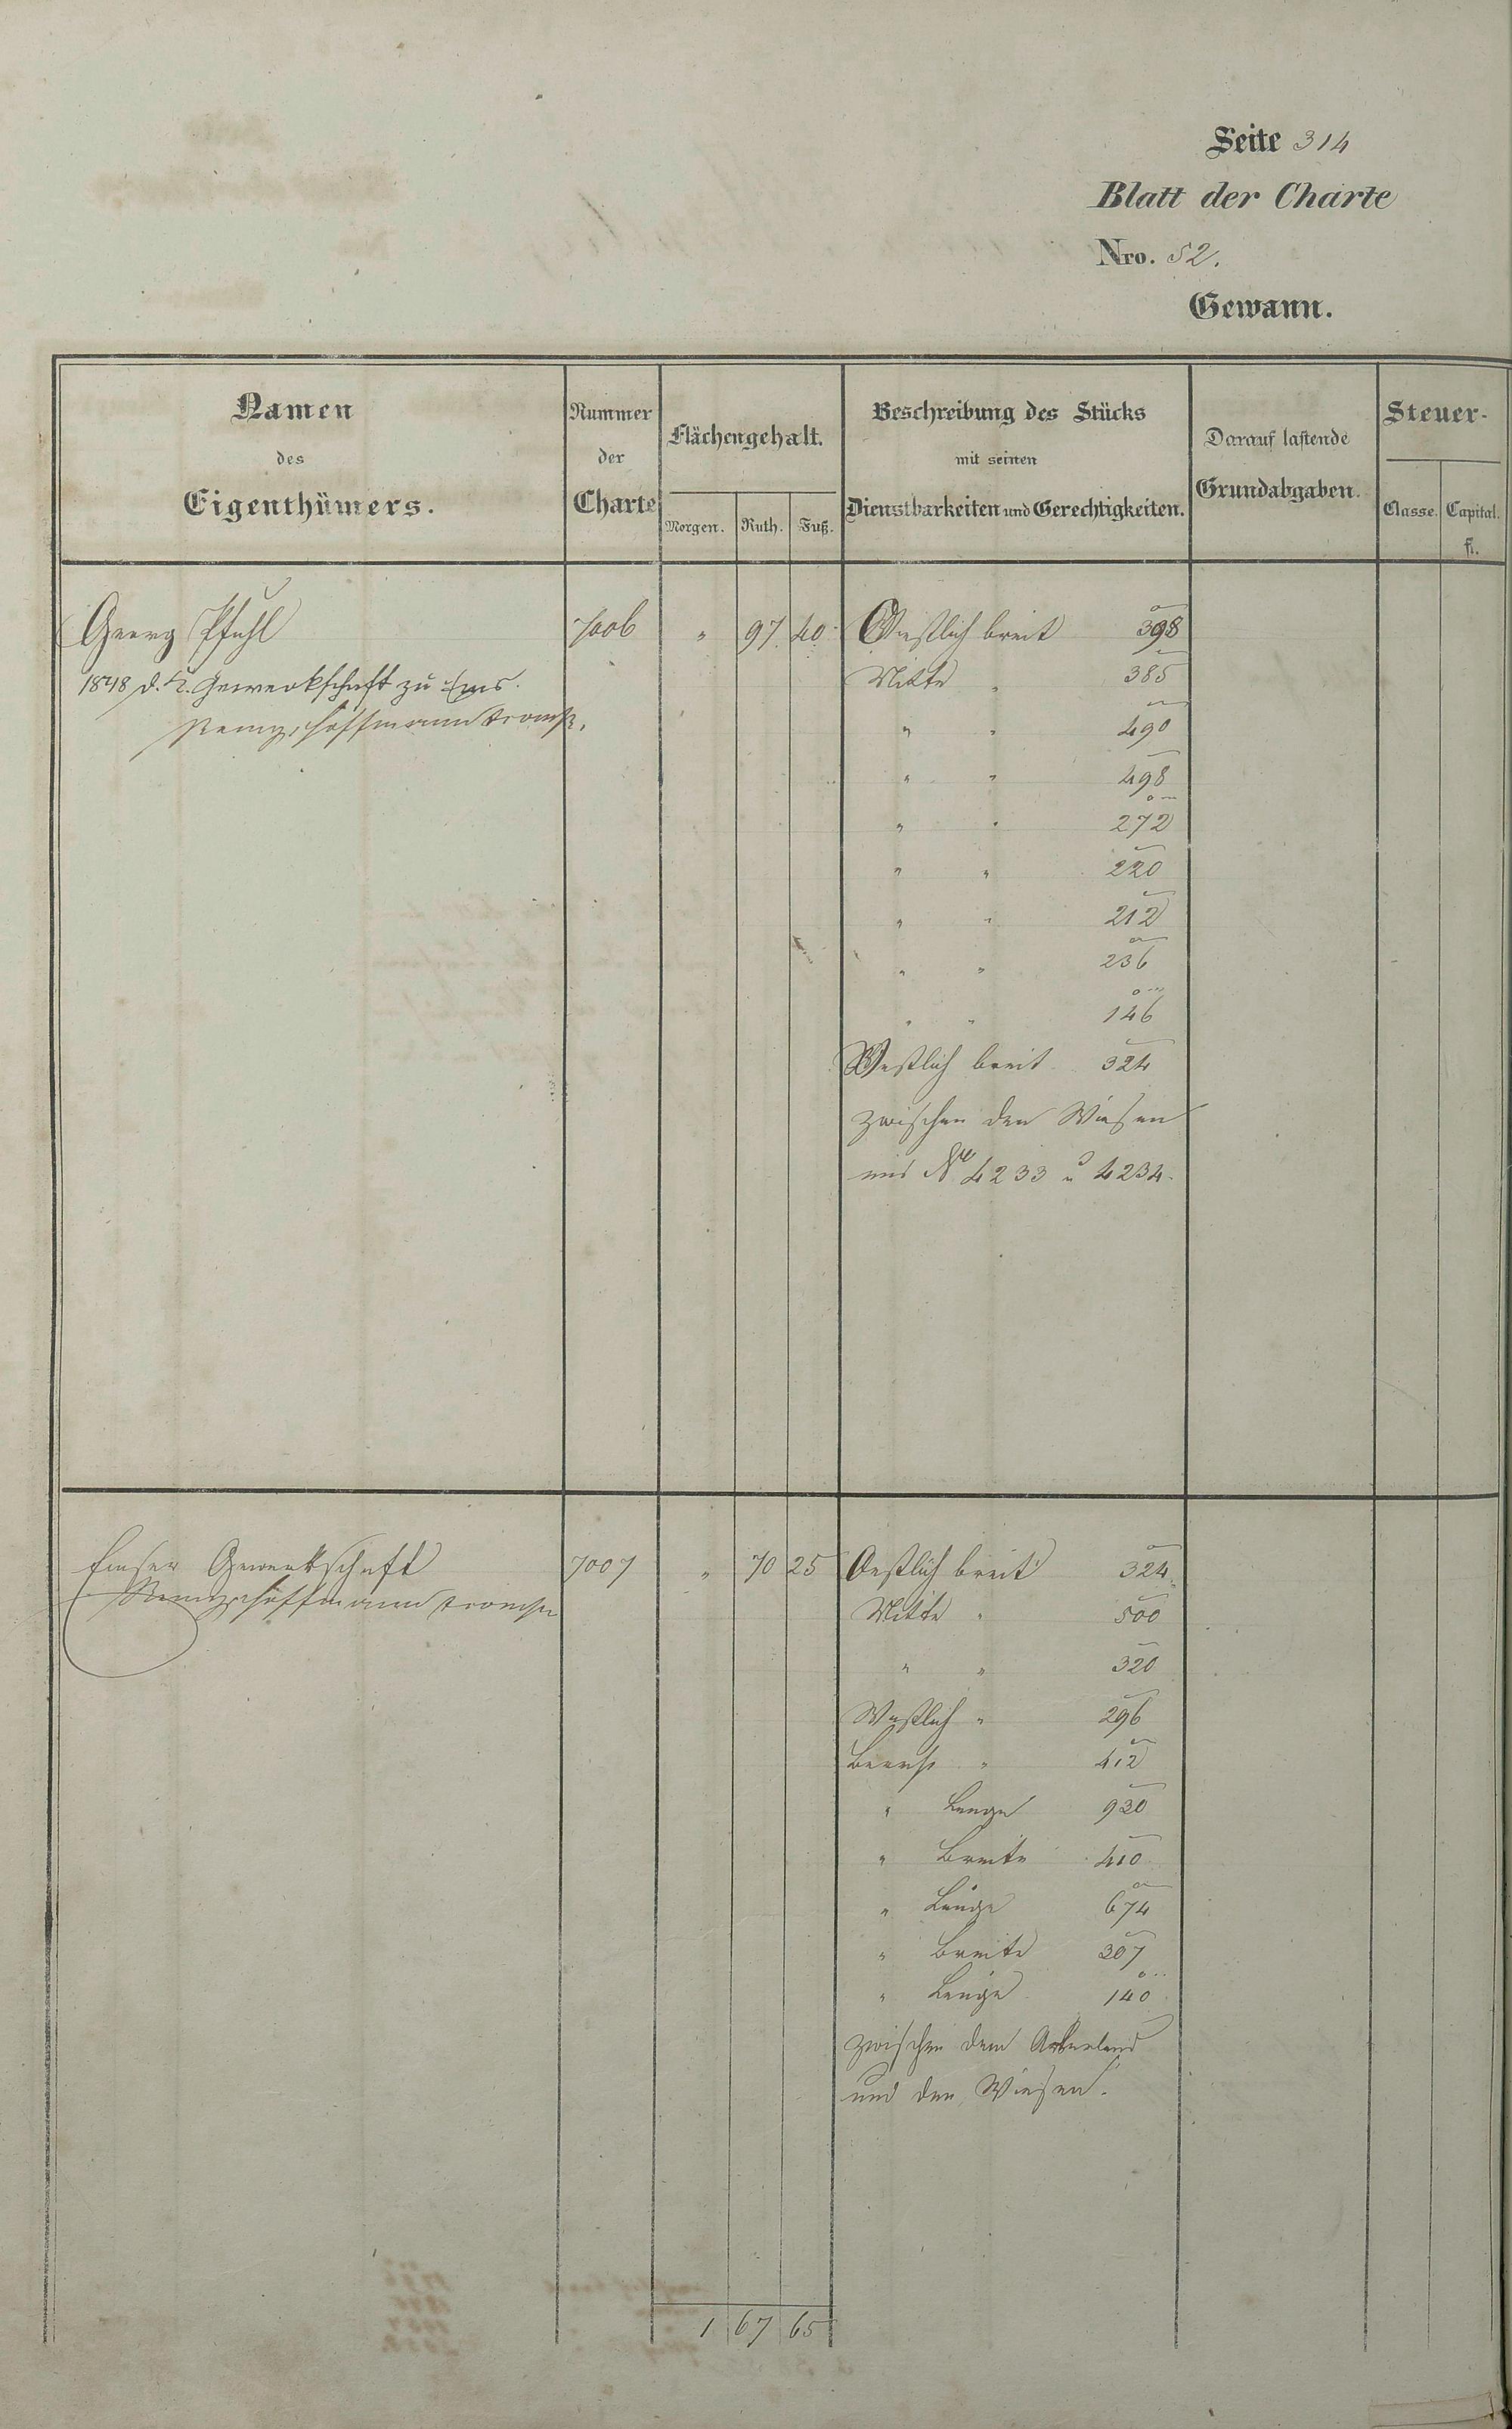 Seite 314
Blatt der Charte
Nro. 52.
Gewann.
Namen des Eigenthümers.
Nummer der Charte
Flächengehalt.
Morgen. Ruth. Fuß.
Beschreibung des Stücks
mit seinen
Dienstbarkeiten und Gerechtigkeiten.
Darauf lastende
Grundabgaben.
Steuer-
Classe. Capital.
fl.
Georg Pfuhl 7006 " 97. 40. Oestlich breit 398
1848 d. d. Gewerkschaft zu Ems. Mitte " 385
Remy, Hoffmann " " 490
" " 498
" " 272
" " 220
" " 212
" " 236
" " 146
Westlich breit 324
zwischen den Wiesen
und No 4233 u 4234.
Emser Gewerkschaft 7007 " 70 25 Oestlich breit 324
Remy, Hoffmann Mitte " 500
" " 320
Westlich " 296
" 412
" Länge 930
" Breite 410
" Länge 674
" Breite 307
" Länge 140
zwischen dem Ackerland
und den Wiesen.
1 67 65